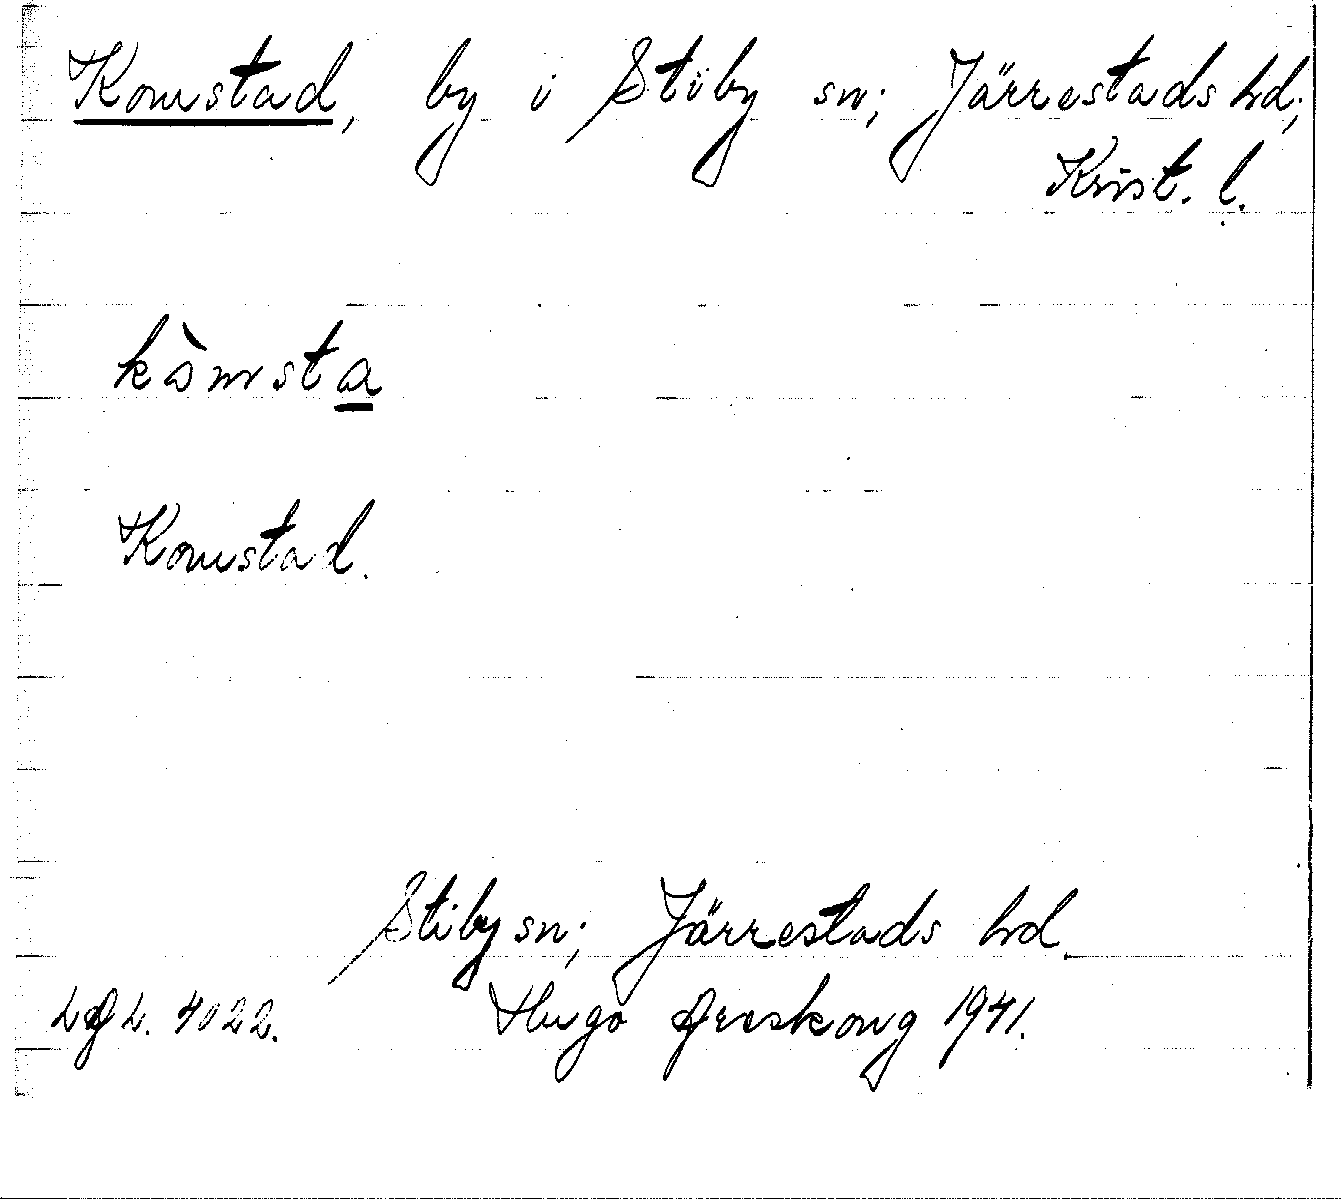 Komstad, by i Stiby sn; Järrestads hd;
Krist. l.
kòmsta
Komstad.
Stiby sn; Järrestads hd.
4022. Hugo Areskoug 1941.